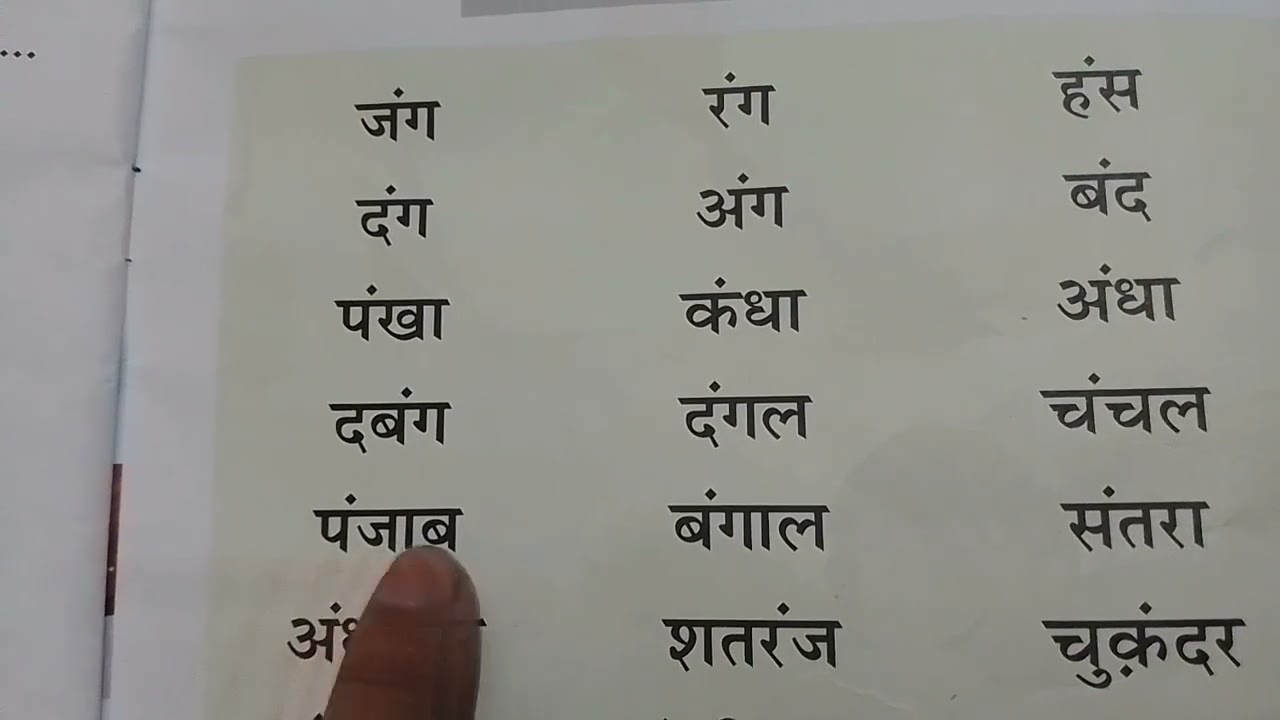 जंग रंग हंस
दंग अंग बंद
पंखा कंधा अंधा
दबंग दंगल चंचल
पंजाब बंगाल संतरा
शतरंज चुक़ंदर